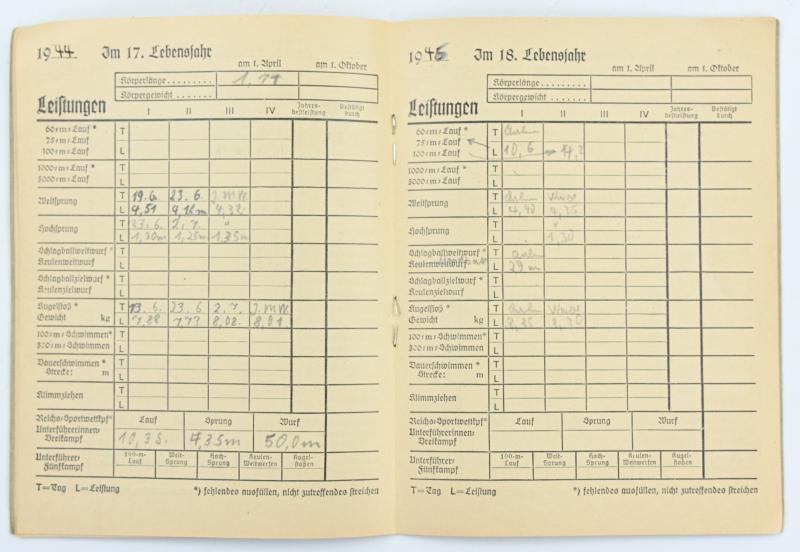 1944 Im 17. Lebensjahr
am 1. April am 1. Oktober
Körperlänge
Körpergewicht
Leistungen I II III IV Jahresbestleistung Bestätigt durch
60=m=Lauf * T
75=m=Lauf
100=m=Lauf L
1000=m=Lauf * T
3000=m=Lauf L
Weitsprung T 19.6. 23.6.
L 4,51 4,32
Hochsprung T 23.6. 2.7. "
L 1,20m 1,25m 1,35m
Schlagballweitwurf * T
Keulenweitwurf L
Schlagballzielwurf * T
Keulenzielwurf L
Kugelstoß * T 19.6. 23.6 2.7.
Gewicht kg L 7,88 7,77 8,02
100=m=Schwimmen * T
300=m=Schwimmen L
Dauerschwimmen * T
Strecke: m L
Klimmziehen T
L
Reichs=Sportwettkpf * Lauf Sprung Wurf
Unterführerinnen=Dreikampf 10,3 s. 4,35m 50,0m
Unterführer=Fünfkampf 100-m-Lauf Weit-Sprung Hoch-Sprung Keulen-Weitwerfen Kugel-stoßen
T=Tag L=Leistung *) fehlendes ausfüllen, nicht zutreffendes streichen
1945 Im 18. Lebensjahr
am 1. April am 1. Oktober
Körperlänge
Körpergewicht
Leistungen I II III IV Jahresbestleistung Bestätigt durch
60=m=Lauf * T
75=m=Lauf
100=m=Lauf L 10,6
1000=m=Lauf * T
3000=m=Lauf L
Weitsprung T
L 4,40 4,35
Hochsprung T "
L 1,30
Schlagballweitwurf * T
Keulenweitwurf L 29 m
Schlagballzielwurf * T
Keulenzielwurf L
Kugelstoß * T
Gewicht kg L
100=m=Schwimmen * T
300=m=Schwimmen L
Dauerschwimmen * T
Strecke: m L
Klimmziehen T
L
Reichs=Sportwettkpf * Lauf Sprung Wurf
Unterführerinnen=Dreikampf
Unterführer=Fünfkampf 100-m-Lauf Weit-Sprung Hoch-Sprung Keulen-Weitwerfen Kugel-stoßen
T=Tag L=Leistung *) fehlendes ausfüllen, nicht zutreffendes streichen